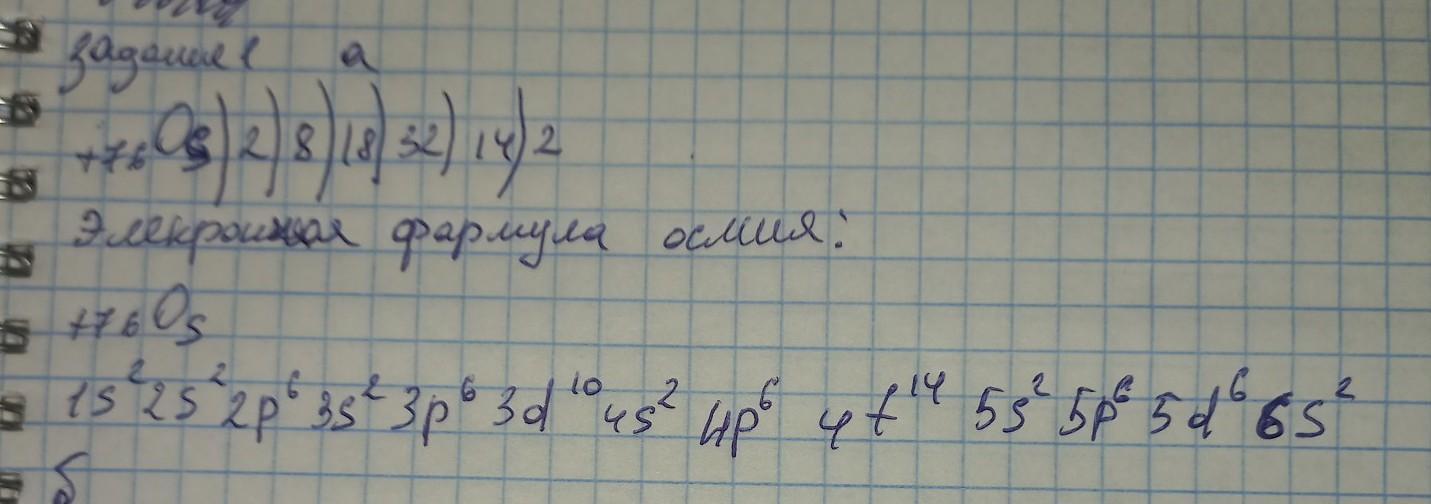 задание 1 а
+76Os)2)8)18)32)14)2
Элекроиная фармула осмия:
+76Os
1s² 2s² 2p⁶ 3s² 3p⁶ 3d¹⁰ 4s² 4p⁶ 4f¹⁴ 5s² 5p⁶ 5d⁶ 6s²
б